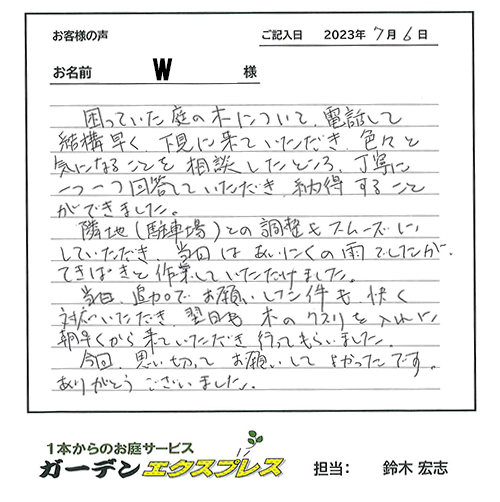 お客様の声
ご記入日 2023年 7月 6日
お名前 W 様
困っていた庭の木について、電話して
結構早く、下見に来ていただき、色々と
気になることを相談したところ、丁寧に
一つ一つ回答していただき、納得すること
ができました。
隣地(駐車場)との調整もスムーズに
していただき、当日はあいにくの雨でしたが、
てきぱきと作業していただけました。
当日、追加でお願いした件も、快く
対応いただき、翌日も木のクスリを入れに
朝早くから来ていただき、行ってもらいました。
今回、思い切ってお願いしてよかったです。
ありがとうございました。
1本からのお庭サービス
ガーデンエクスプレス
担当: 鈴木 宏志